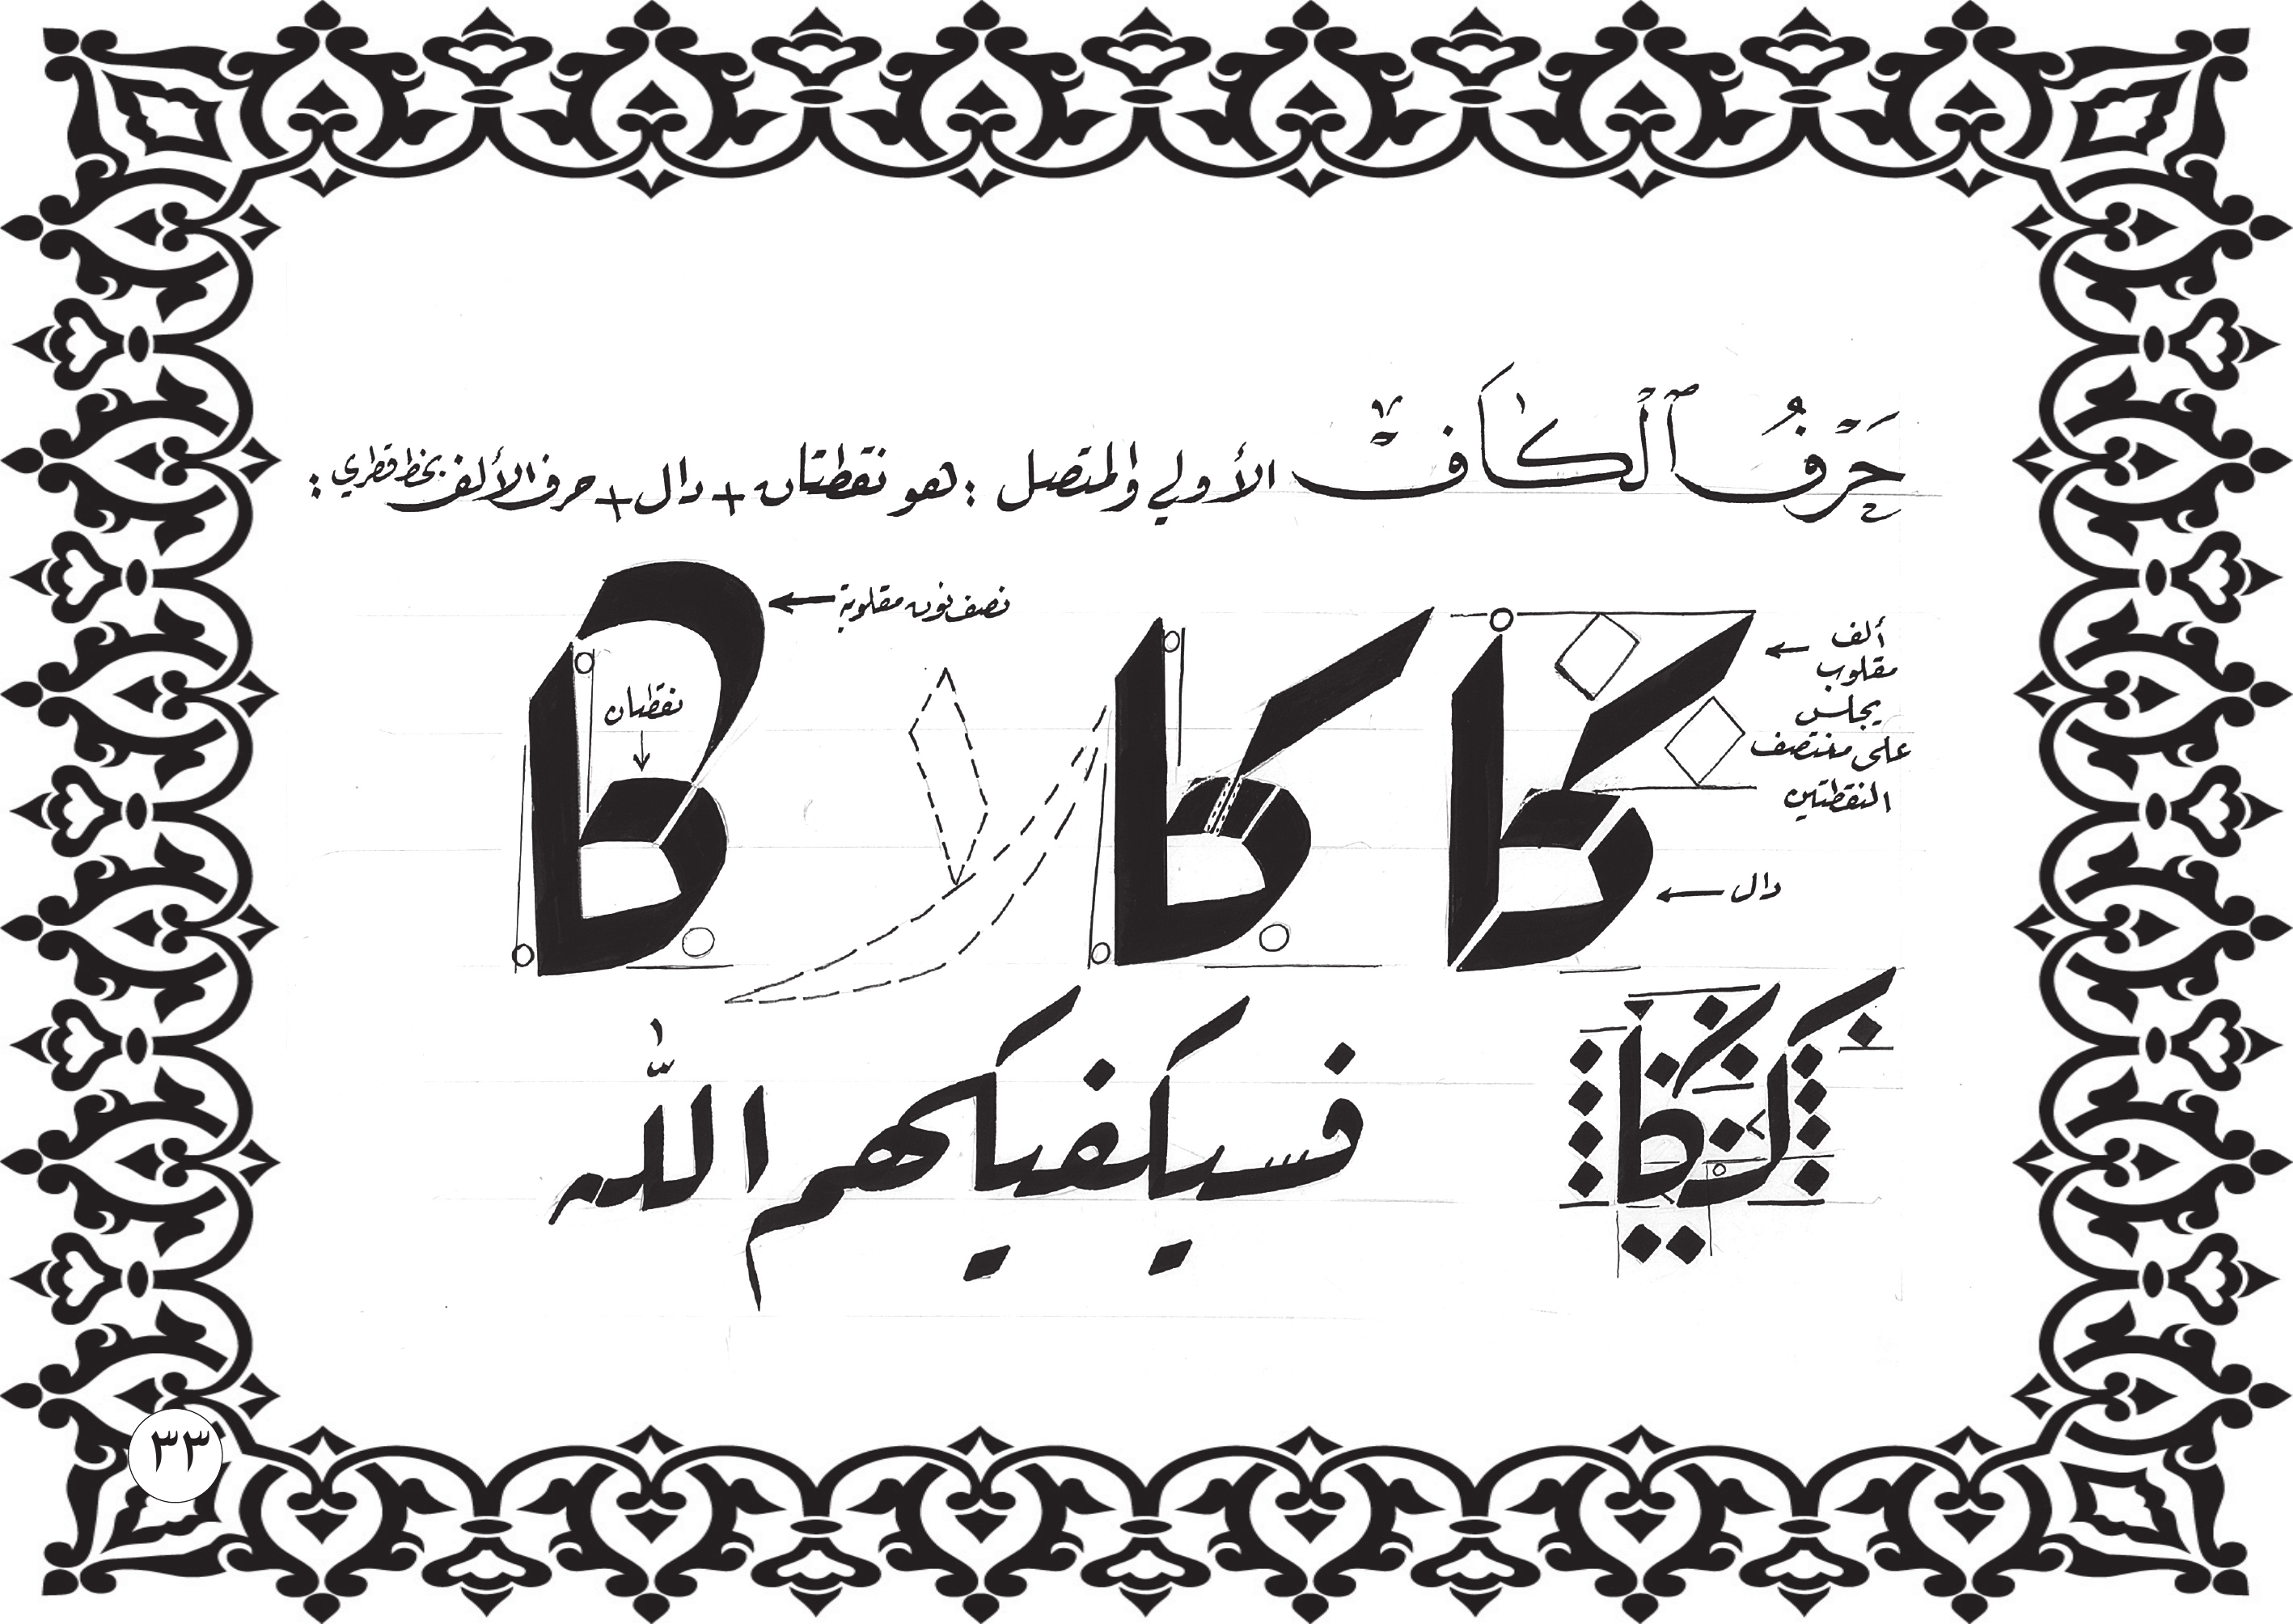 حَرْفُ ٱلْكَافْ الأولي والمتصل : هو نقطتان + دال + حرف الألف بخط قطري :
نصف نون مقلوبة
ألف
مقلوب
يجلس
على منتصف
النقطتين
نقطتان
كا كا كا
دال
فسيكفيكهم اللّٰه
٣٣